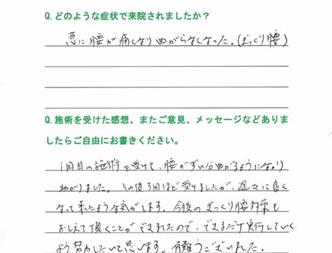 Q.どのような症状で来院されましたか？
急に腰が痛くなり曲がらなくなった。(ぎっくり腰)
Q.施術を受けた感想、またご意見、メッセージなどありま
したらご自由にお書きください。
1回目の施術を受けて、腰がずい分曲がるようになり
助かりました。その後3回ほど受けましたが、徐々に良く
なって来たような気がします。今後のぎっくり腰対策も
おしえて頂くことができましたので、できるだけ実行していく
よう努力したいと思います。有難うございました。